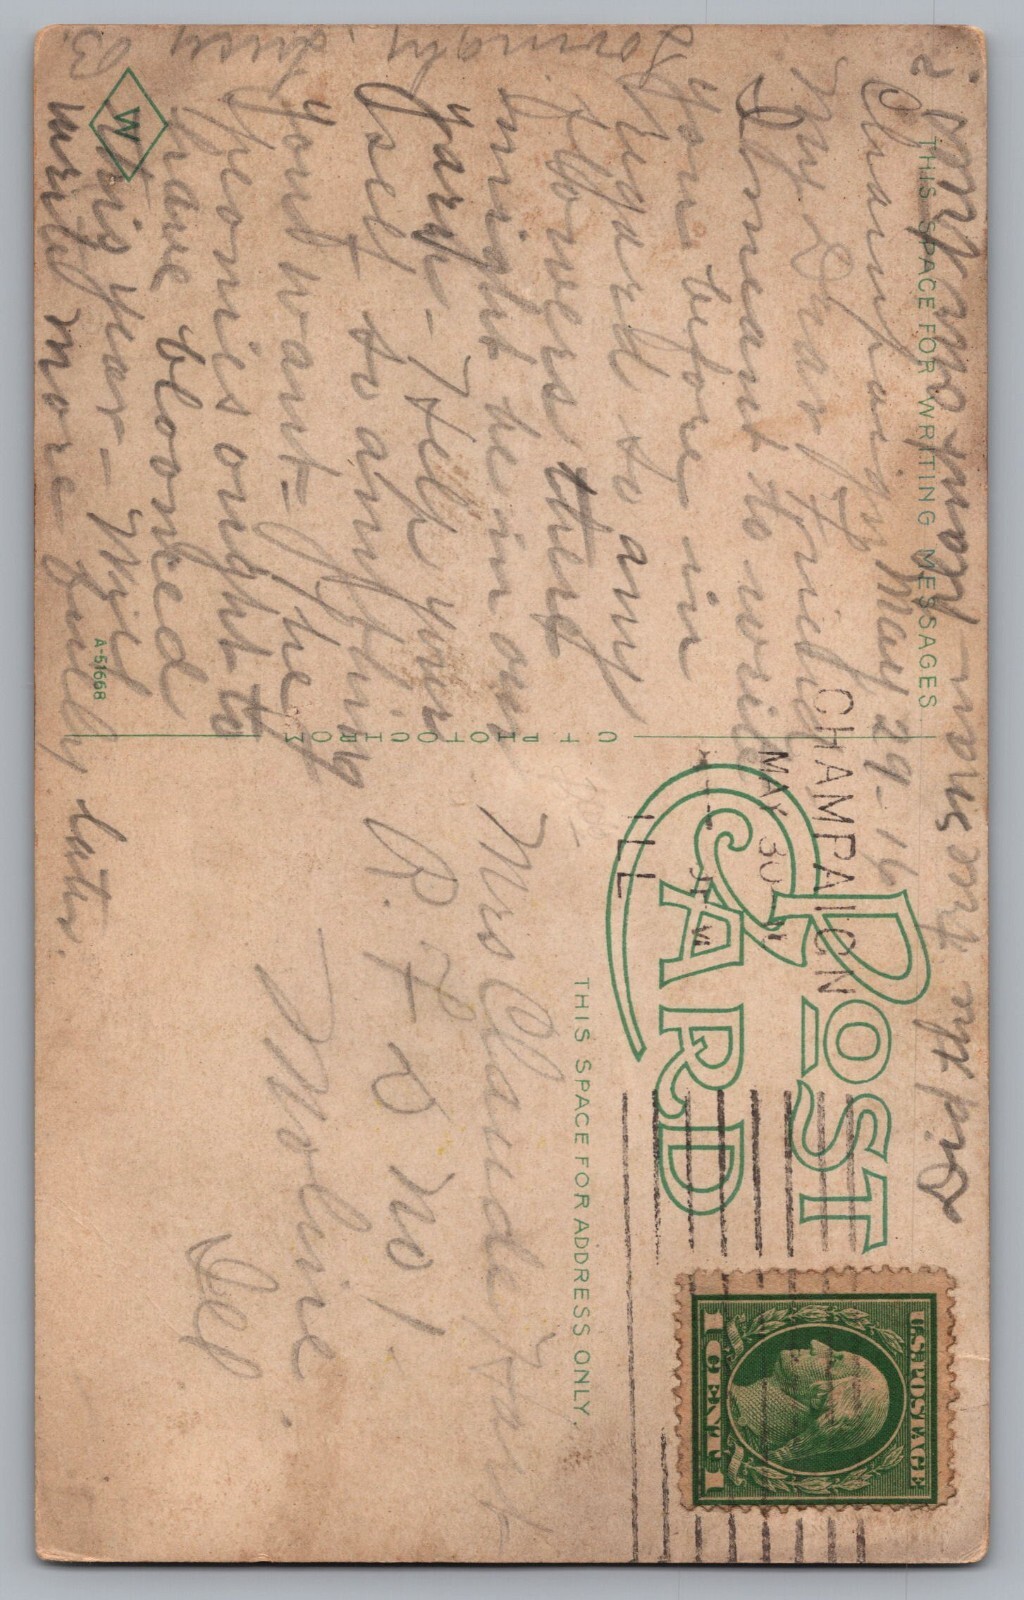 Did the tree man plant our maples?
THIS SPACE FOR WRITING MESSAGES
Champaign May 29-16
My Dear Friend
I meant to write
you before in
regard to any
flowers there
might be in our
yard - Help your
self to anything
you want = The
peonies ought to
have bloomed
this year - Will
write more fully later.
Lovingly Lucy
B.
W
A-51668
C T PHOTOCHROM
POST CARD
CHAMPAIGN
MAY 30
ILL
U.S. POSTAGE
1 CENT 1
THIS SPACE FOR ADDRESS ONLY.
Mrs Claude Hart
R. F D No 1.
Moline.
Ill